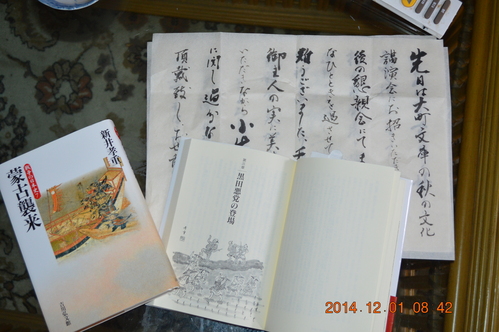 先日は大町文庫の秋の文化
講演会にお招きいただき
後の懇親会にてま
なひとときを過させて
難うございました
御主人の実に美
いただきながら小生
に関し過分な
頂戴致し
新井孝重
戦争の日本史7
蒙古襲来
吉川弘文館
黒田悪党の登場
2014.12.01 08 42